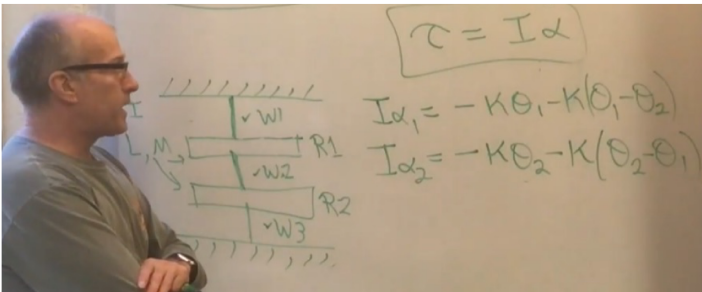 τ = Iα
I
✓W1
L, M
R1
✓W2
R2
✓W3
Iα₁ = -Kθ₁-K(θ₁-θ₂)
Iα₂ = -Kθ₂-K(θ₂-θ₁)